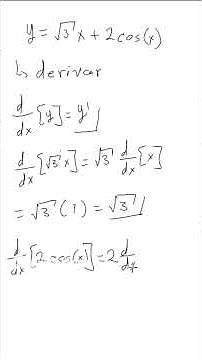 y = √3 x + 2cos(x)
↳ derivar
d/dx [y] = y'
d/dx [√3 x] = √3 d/dx [x]
= √3 (1) = √3
d/dx [2 cos(x)] = 2 d/dx